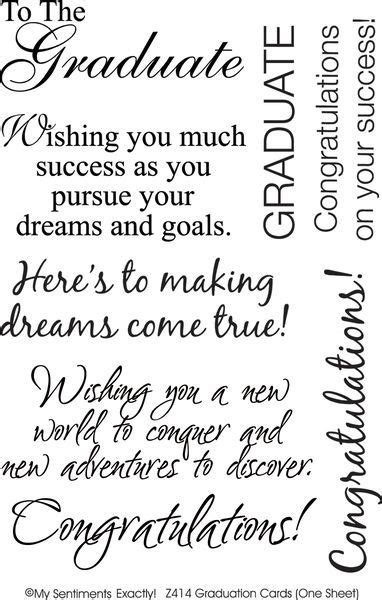 To The
Graduate
Wishing you much
success as you
pursue your
dreams and goals.
GRADUATE
Congratulations
on your success!
Here's to making
dreams come true!
Wishing you a new
world to conquer and
new adventures to discover.
Congratulations!
Congratulations!
©My Sentiments Exactly! Z414 Graduation Cards (One Sheet)